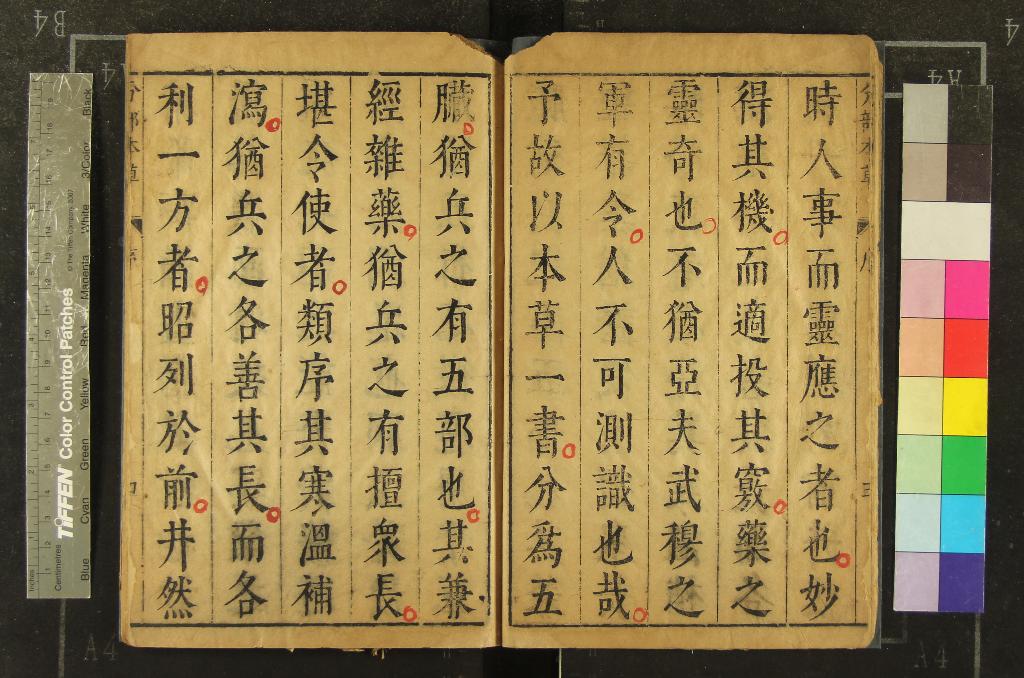 時人事而靈應之者也妙
得其機而適投其竅藥之
靈奇也不猶亞夫武穆之
軍有令人不可測識也哉
予故以本草一書分為五
臟猶兵之有五部也其兼
經雜藥猶兵之有擅衆長
堪令使者類序其寒溫補
瀉猶兵之各善其長而各
利一方者昭列於前井然
分部本草
序
TIFFEN Color Control Patches
© The Tiffen Company, 2007
Blue Cyan Green Yellow Red Magenta White 3/Color Black
Inches
Centimetres
B4
A4
A4
A4
A4